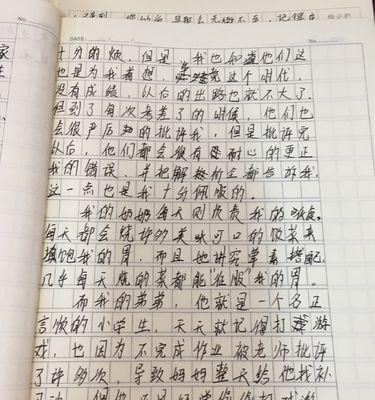 No.
DATE:
家
十分的烦，但是，我也知道他们这
也是为我着想，毕竟这个时代，
没有成绩，以后的出路也就不大了。
但到了每次考差了的时候，他们也
会很严厉的批评我，但是批评完
以后，他们都会很有耐心的更正
我的错误，并把解题析全都告诉我，
这一点也是我十分佩服的。
我的奶奶每天则负责我的伙食。
每天都会烧许多美味可口的饭菜来
填饱我的胃，而且她讲究荤素搭配，
几乎每天烧的菜都能"征服"我的胃。
而我的弟弟，他就是一个名正
言顺的小学生，天天就记得打游
戏，也因为不完成作业被老师批评
了许多次，导致妈妈整天给他找补